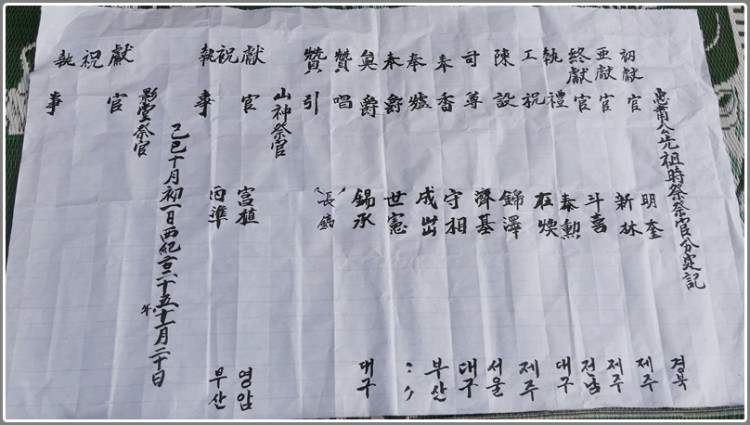 忠甫公先祖時祭祭官分定記
初獻官 明奎 경북
亞獻官 新林 제주
終獻官 斗喜 제주
執禮 泰勲 전남
工祝 在煥 대구
陳設 錦澤 제주
司尊 濟基 서울
奉香 守相 대구
奉爐 成 부산
奉爵 世憲 〃
奠爵 錫承 대구
贊唱 長鎬
贊引
山神祭官
獻官 富植 영암
祝 丙準 부산
執事
影堂祭官
乙巳十月初一日西紀二千二十五年十一月二十日
獻官
祝
執事